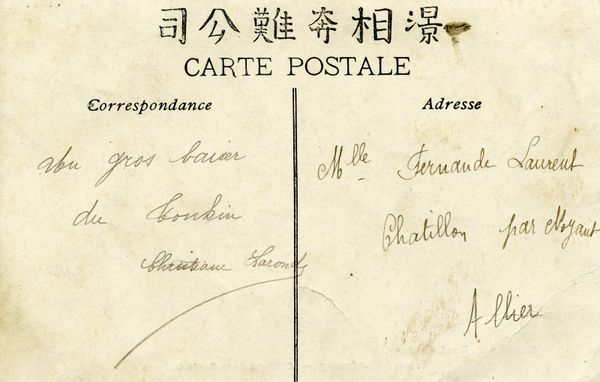 司公難奔相澋
CARTE POSTALE
Correspondance
Adresse
un gros baiser
du Tonkin
Christiane
Mlle Fernande Laurent
Chatillon par Noyant
Allier